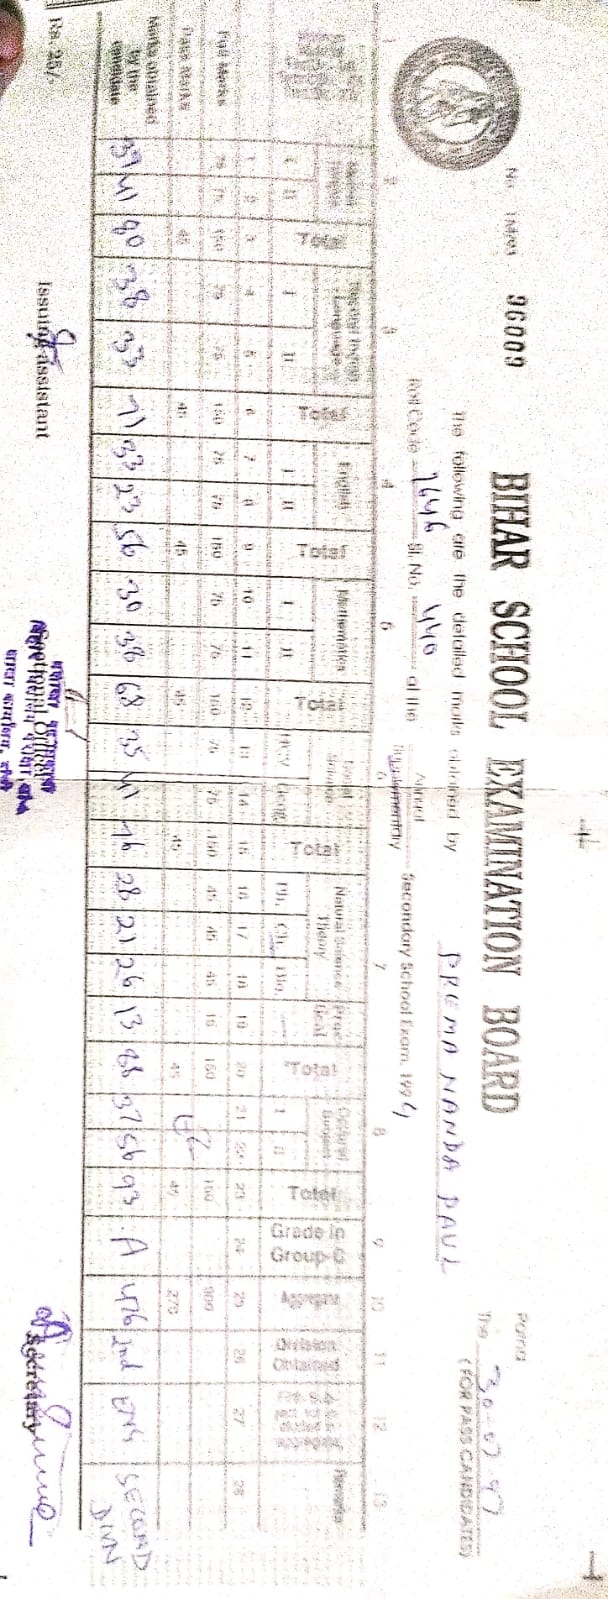 No. 36009
BIHAR SCHOOL EXAMINATION BOARD
Patna
The 30-07-97
(FOR PASS CANDIDATES)
The following are the detailed marks obtained by PREMA NANDA PAUL
Roll Code 7646 Sl. No. 440 of the Annual Secondary School Exam. 199
1 2 3 4 5 6 7 8 9 10 11 12 13
Total English Total Mathematics Total Natural Science Theory Total Optional Subject Total Grade in Group-C Aggregate Division Obtained Remarks
I II Total I II Total I II Total I II Total Geog. Total Ph. Ch. Bio Total I II Total
1 2 3 4 5 6 7 8 9 10 11 12 13 14 15 16 17 18 19 20 21 22 23 24 25 26 27 28
Full Marks 75 75 150 75 75 150 75 75 150 75 75 150 75 75 150 45 45 45 15 150 150 900
Pass Marks 45 45 45 45 45 45 45 270
Marks obtained by the candidate 39 41 80 38 33 71 33 23 56 30 38 68 35 41 76 28 21 26 13 88 37 56 93 A 476 2nd ENG SECOND DIVN
Rs. 25/-
Issuing assistant
Secretary